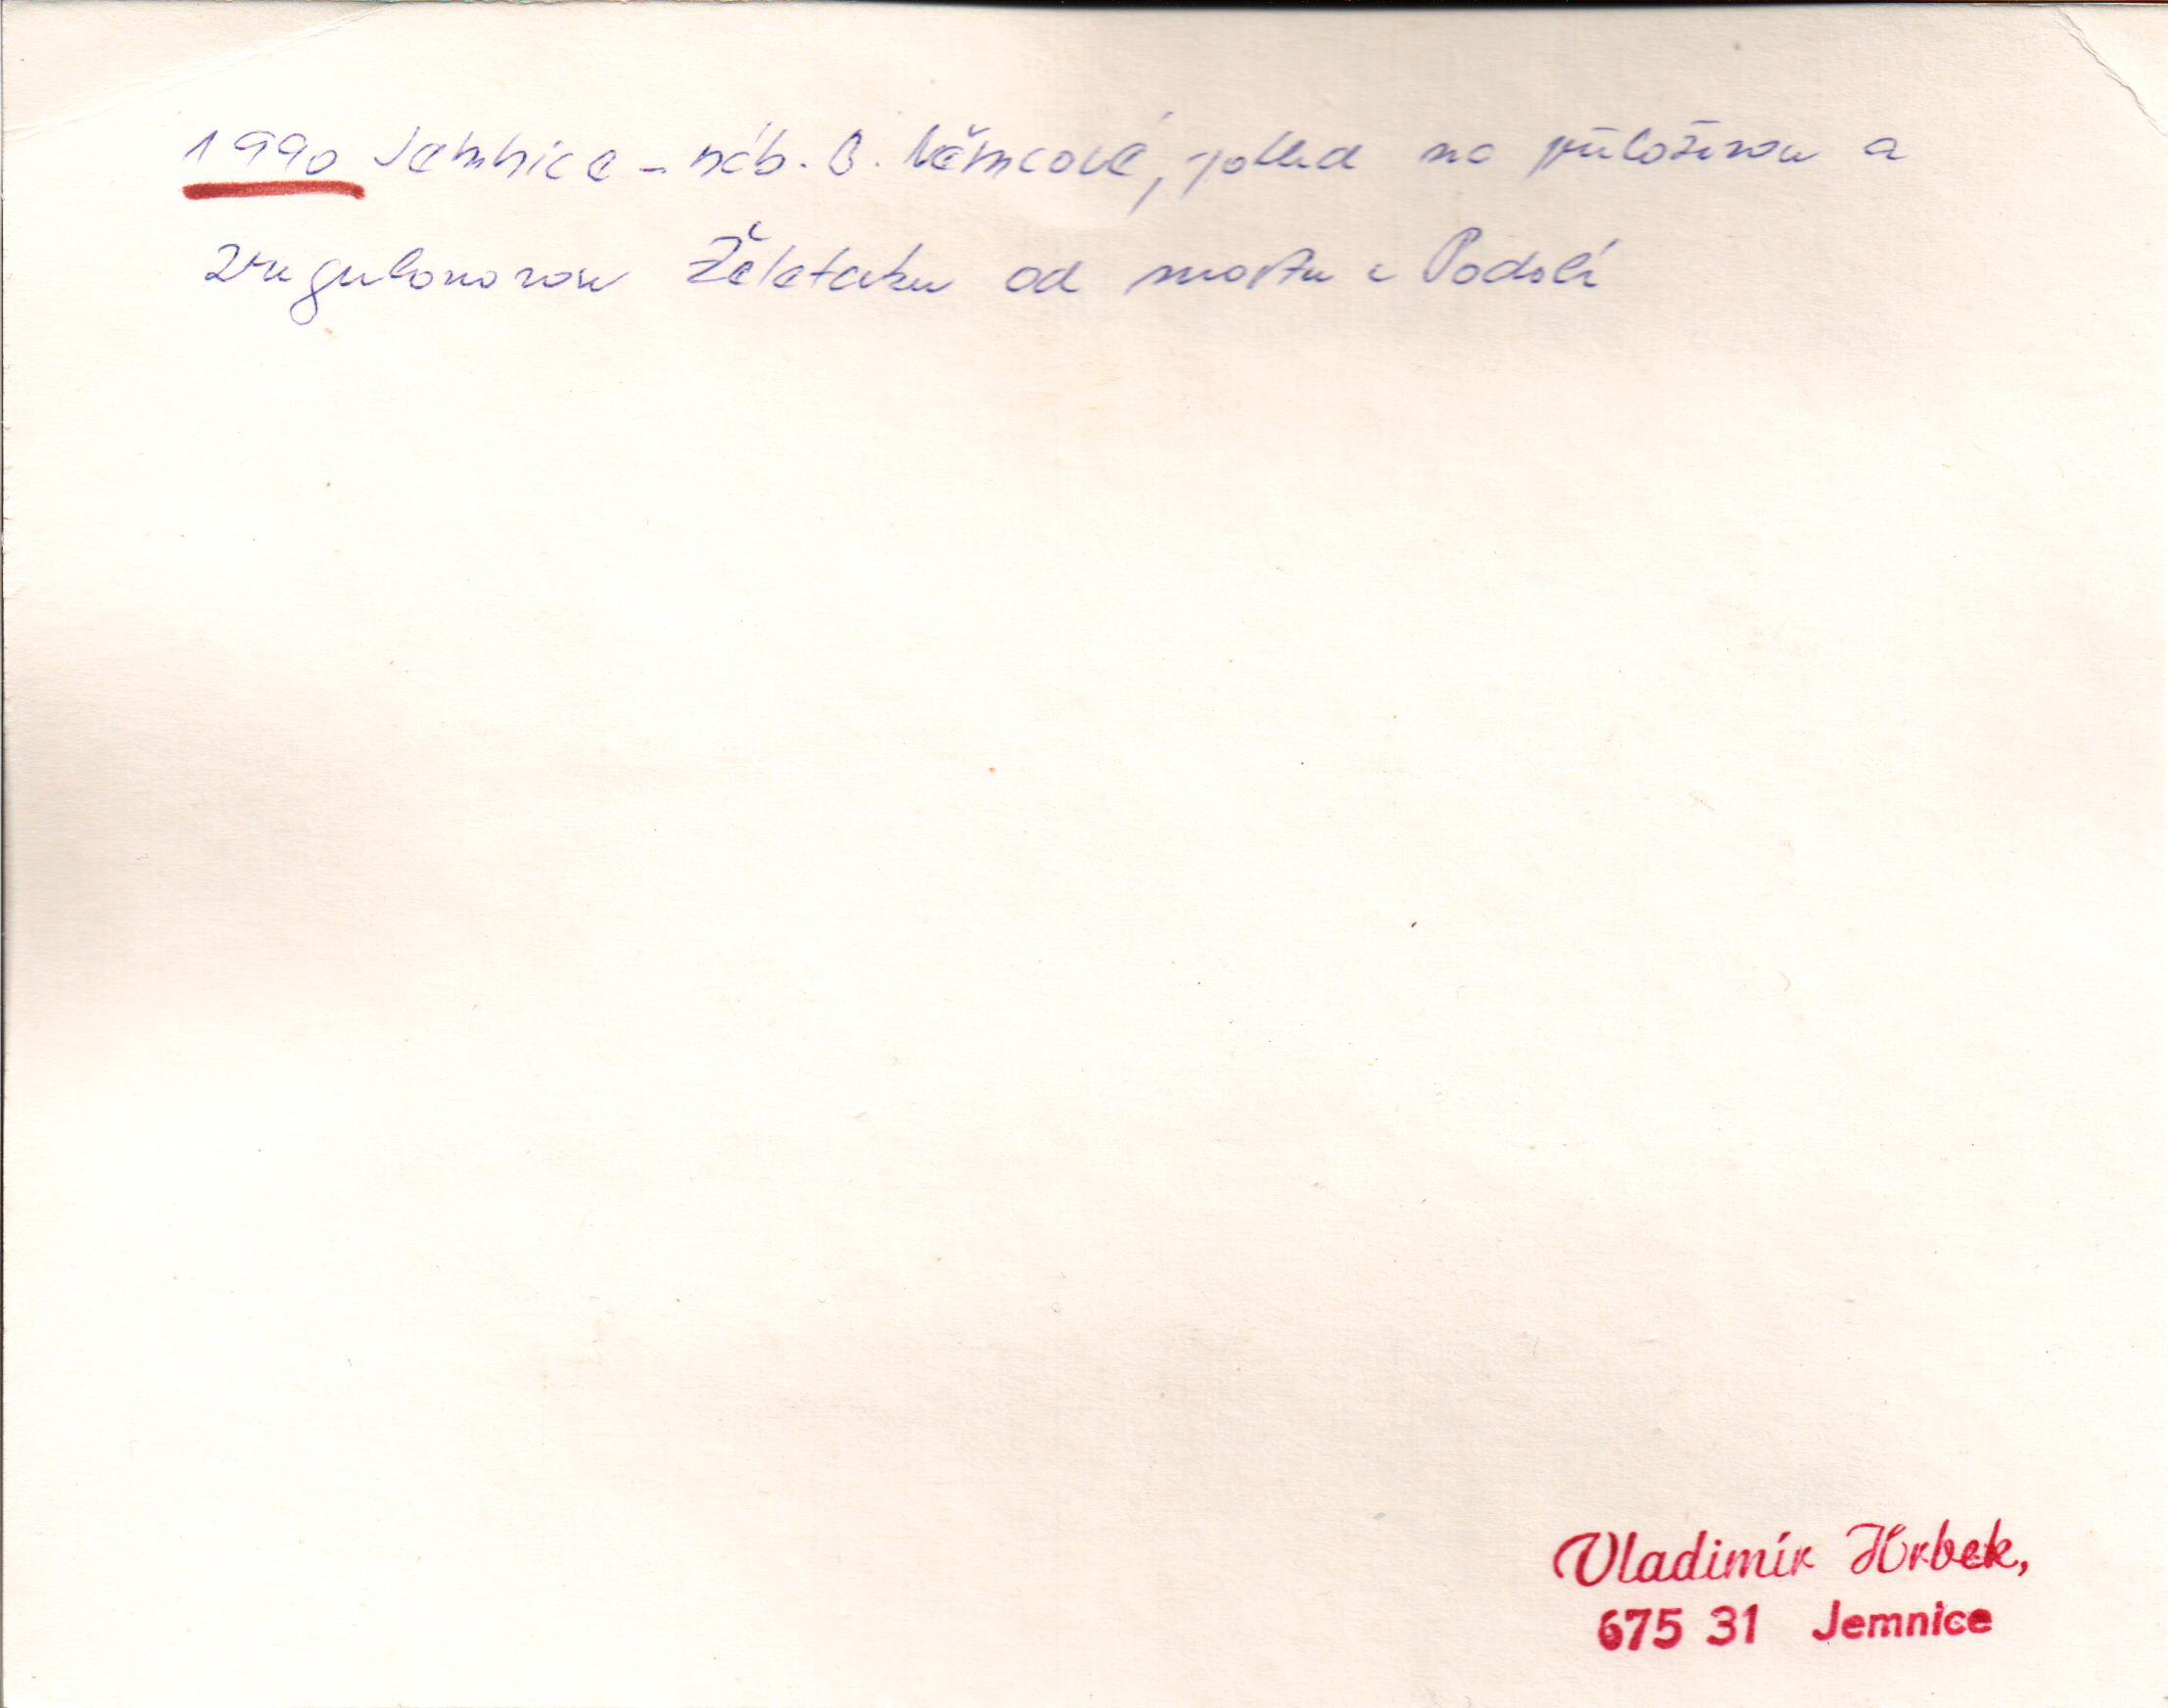 1990 Jemnice - náb. B. Němcové, pohled na přeloženou a
zregulovanou Želetavku od mostu z Podolí
Vladimír Hrbek,
675 31 Jemnice